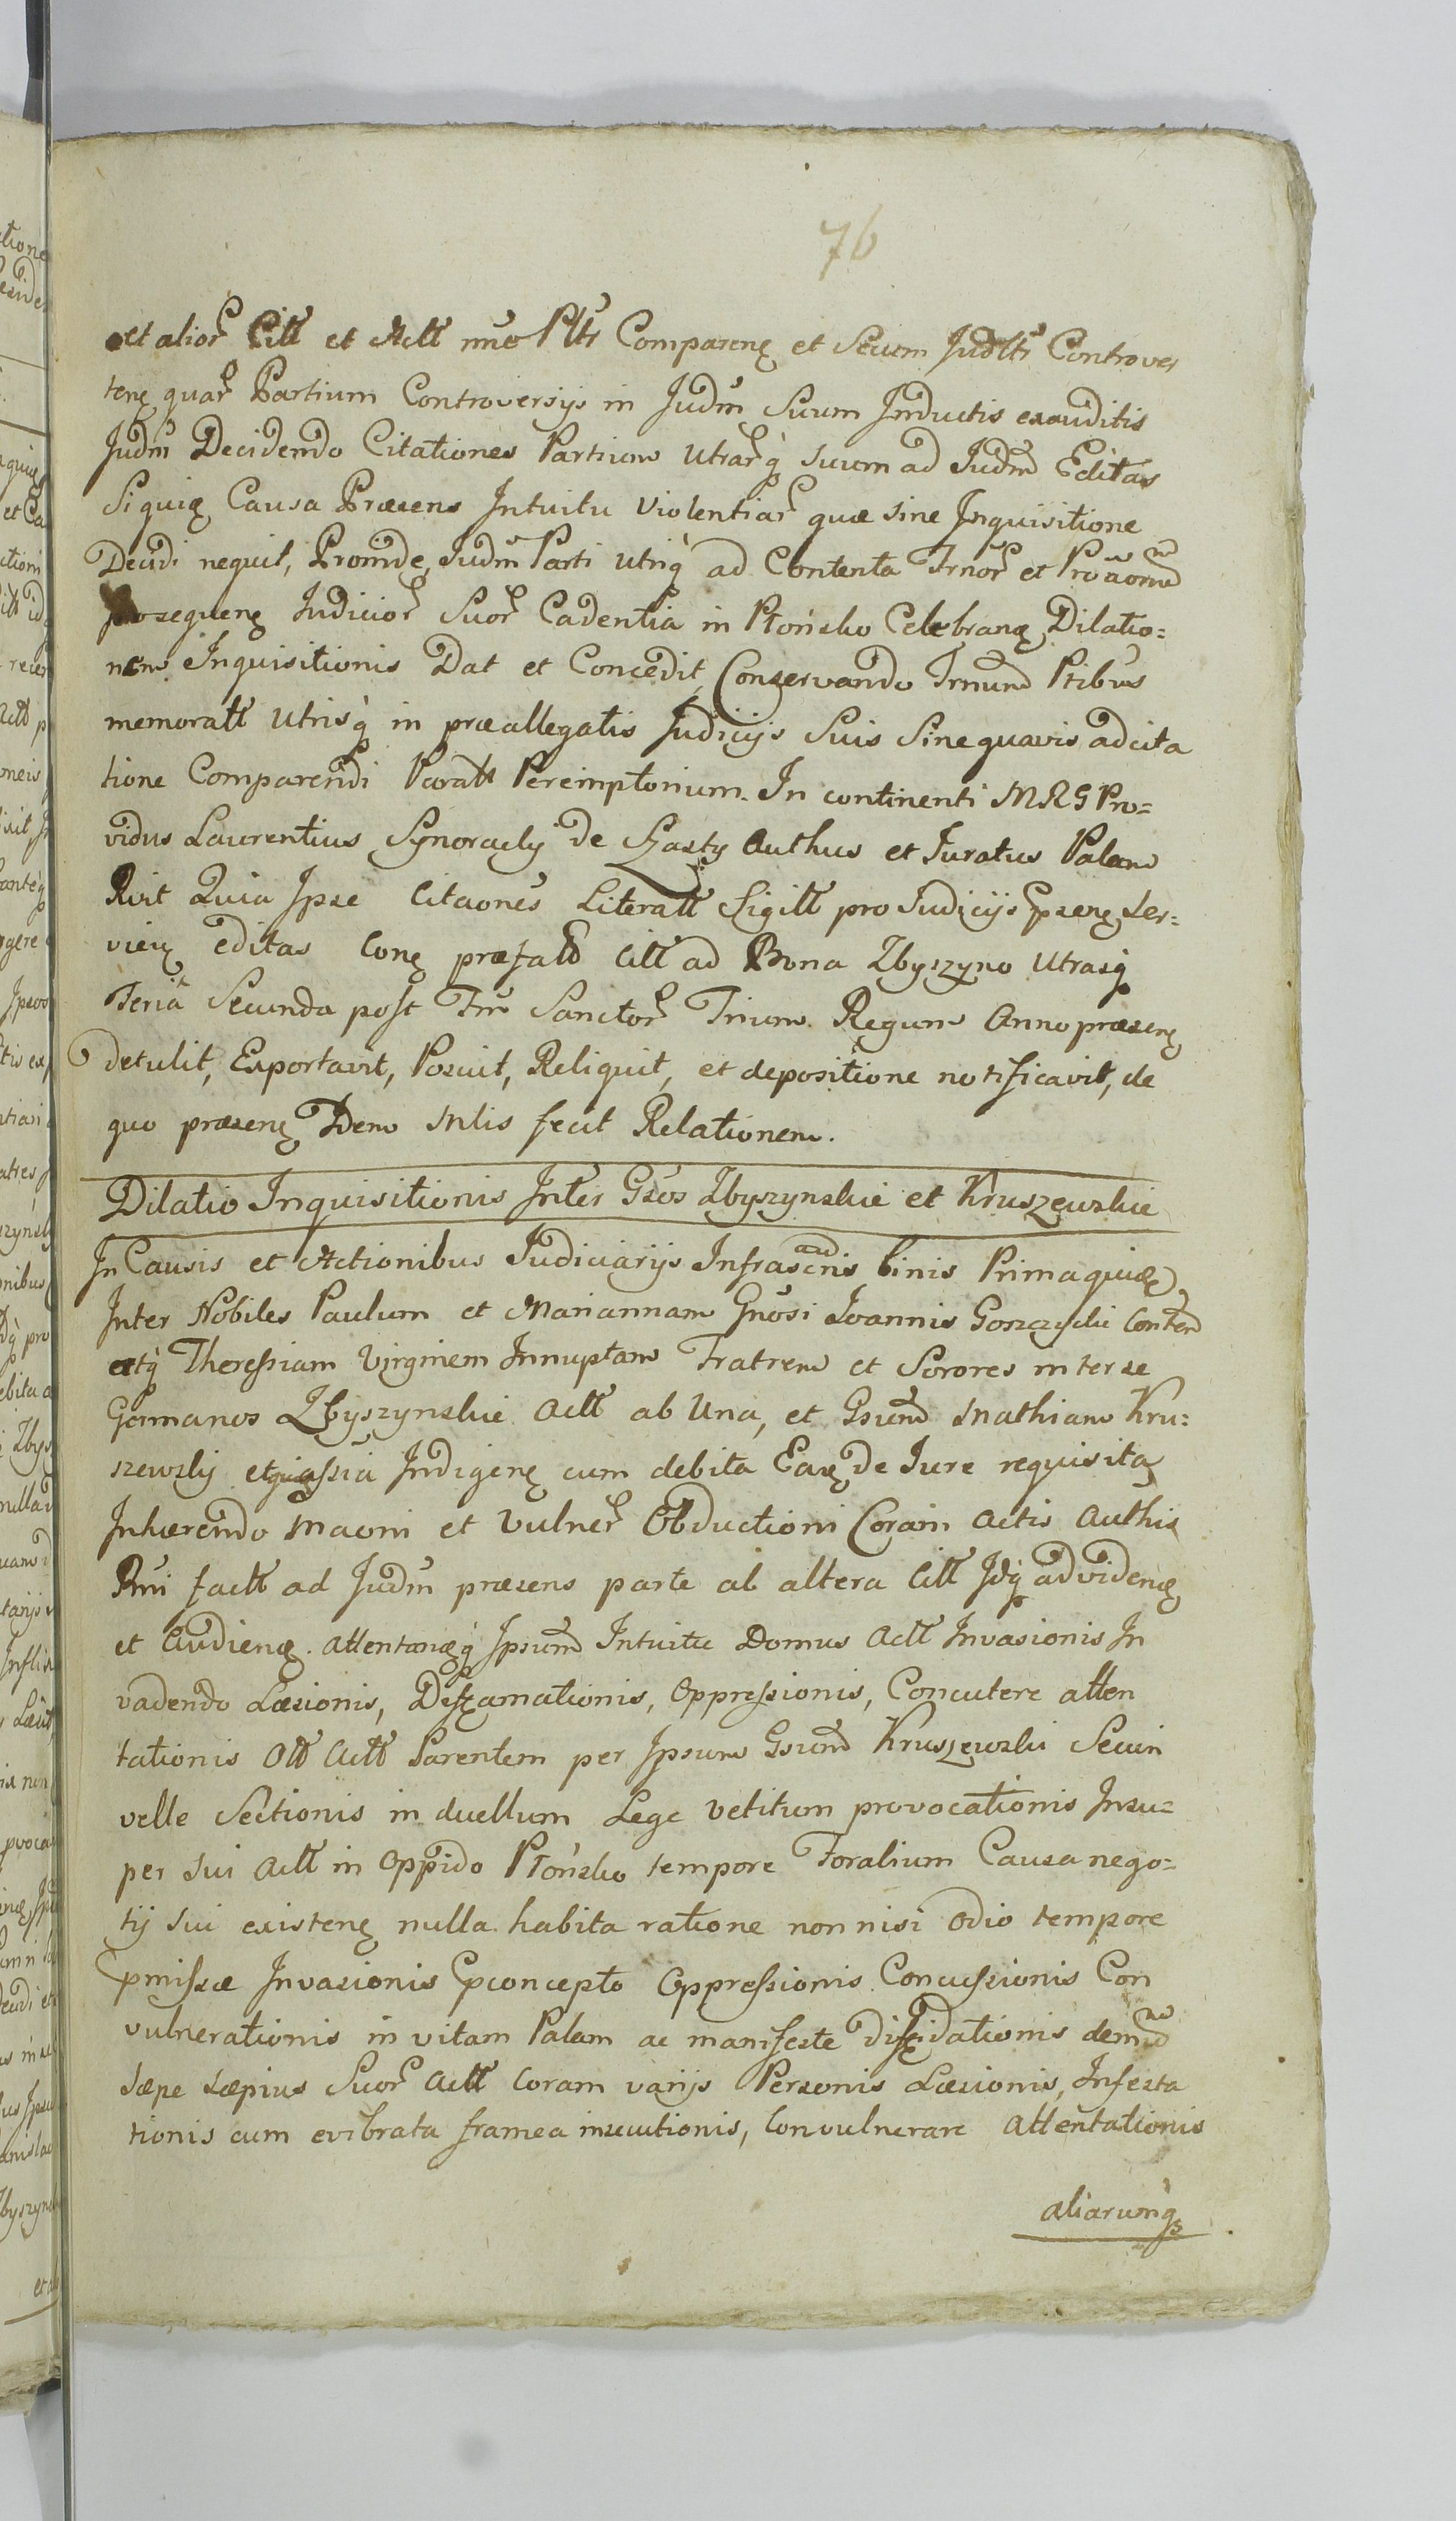 76
et alior Citt et Actt mno Pltr Comparenę et Secum Judltr Controver
tenę quar Partium Controversijs in Judm Suum Inductis exauditis
Judm Decidendo Citationes Partium Utrarq suum ad Judm Editas
Siquię Causa Præsens Intuitu Violentiar quæ sine Inquisitione
Decidi nequit, Proinde Judm Parti Utriq ad Contenta Trnor et
prosequenę Judicior Suor Cadentia in Płońsko Celebranę Dilatio=
nem Inquisitionis Dat et Concedit, Conservando Trnum Ptibus
memoratt Utrisq in præallegatis Judicijs Suis Sine quavis adcita
tione Comparendi Paratt Peremptorium. In continenti MRG Pro=
vidus Laurentius Synoracky de Szasty Authus et Juratus Palam
Rvit Quia Ipse Citaones Literatt Sigitt pro Judicijs Psenę Ser=
vienę editas Conę præfatt Citt ad Bona Zbyszyno Utrasq
Feria Secunda post Fm Sanctor Trium Regum Anno præsenę
detulit, Exportavit, Posuit, Reliquit, et depositione notificavit, de
quo præsenę Idem Mlis fecit Relationem.
Dilatio Inquisitionis Inter Gsos Zbyszynskie et Kruszewskie
In Causis et Actionibus Judiciarijs Infrascris binis Prima quidę
Inter Nobiles Paulum et Mariannam Gnosi Joannis Goszczycki Conten
atq Theressiam Virginem Innuptam Fratrem et Sorores inter se
Germanos Zbyszynskie Actt ab Una, et Gsum Mathiam Kru=
szewsky Indigenę cum debita Eaę de Jure requisita
Inhærendo Maoni et Vulner Obductioni Coram Actis Authis
Rmi factt ad Judm præsens parte ab altera Citt Idq ad videnę
et Audienę. Attentanęq Ipsum Intuitu Domus Actt Invasionis In
vadendo Læsionis, Diffamationis, Oppressionis, Concutere atten
tationis Ott Actt Parentem per Ipsum Gsum Kruszewski Sevin
velle Sectionis in duellum Lege vetitum provocationis Insu=
per sui Actt in Oppido Płońsko tempore Foralium Causa nego=
tij sui existenę nulla habita ratione non nisi odio tempore
pmissæ Invasionis pconcepto Oppressionis Concussionis Con
vulnerationis in vitam Palam ac manifeste diffidationis demum
sæpe sæpius Suor Actt Coram varijs Personis Læsionis, Infesta
tionis cum evibrata framea insecutionis, Convulnerare attentationis
aliarumq